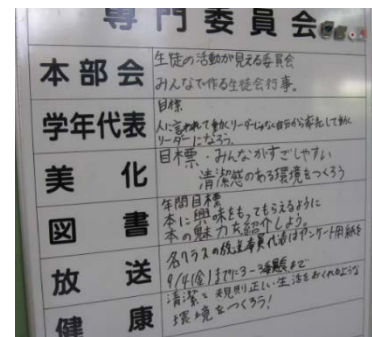 専門委員会
本部会
生徒の活動が見える委員会
みんなで作る生徒会行事。
学年代表
目標
人に言われて動くリーダーじゃなく自分から率先して動く
リーダーになろう。
美化
目標・みんながすごしやすい
清潔感のある環境をつくろう
図書
年間目標
本に興味をもってもらえるように
本の魅力を紹介しよう。
放送
各クラスの放送委員代表はアンケート用紙を
9/4(金)までに3-3
まで
健康
清潔で規則正しい生活をおくれるような
環境をつくろう!